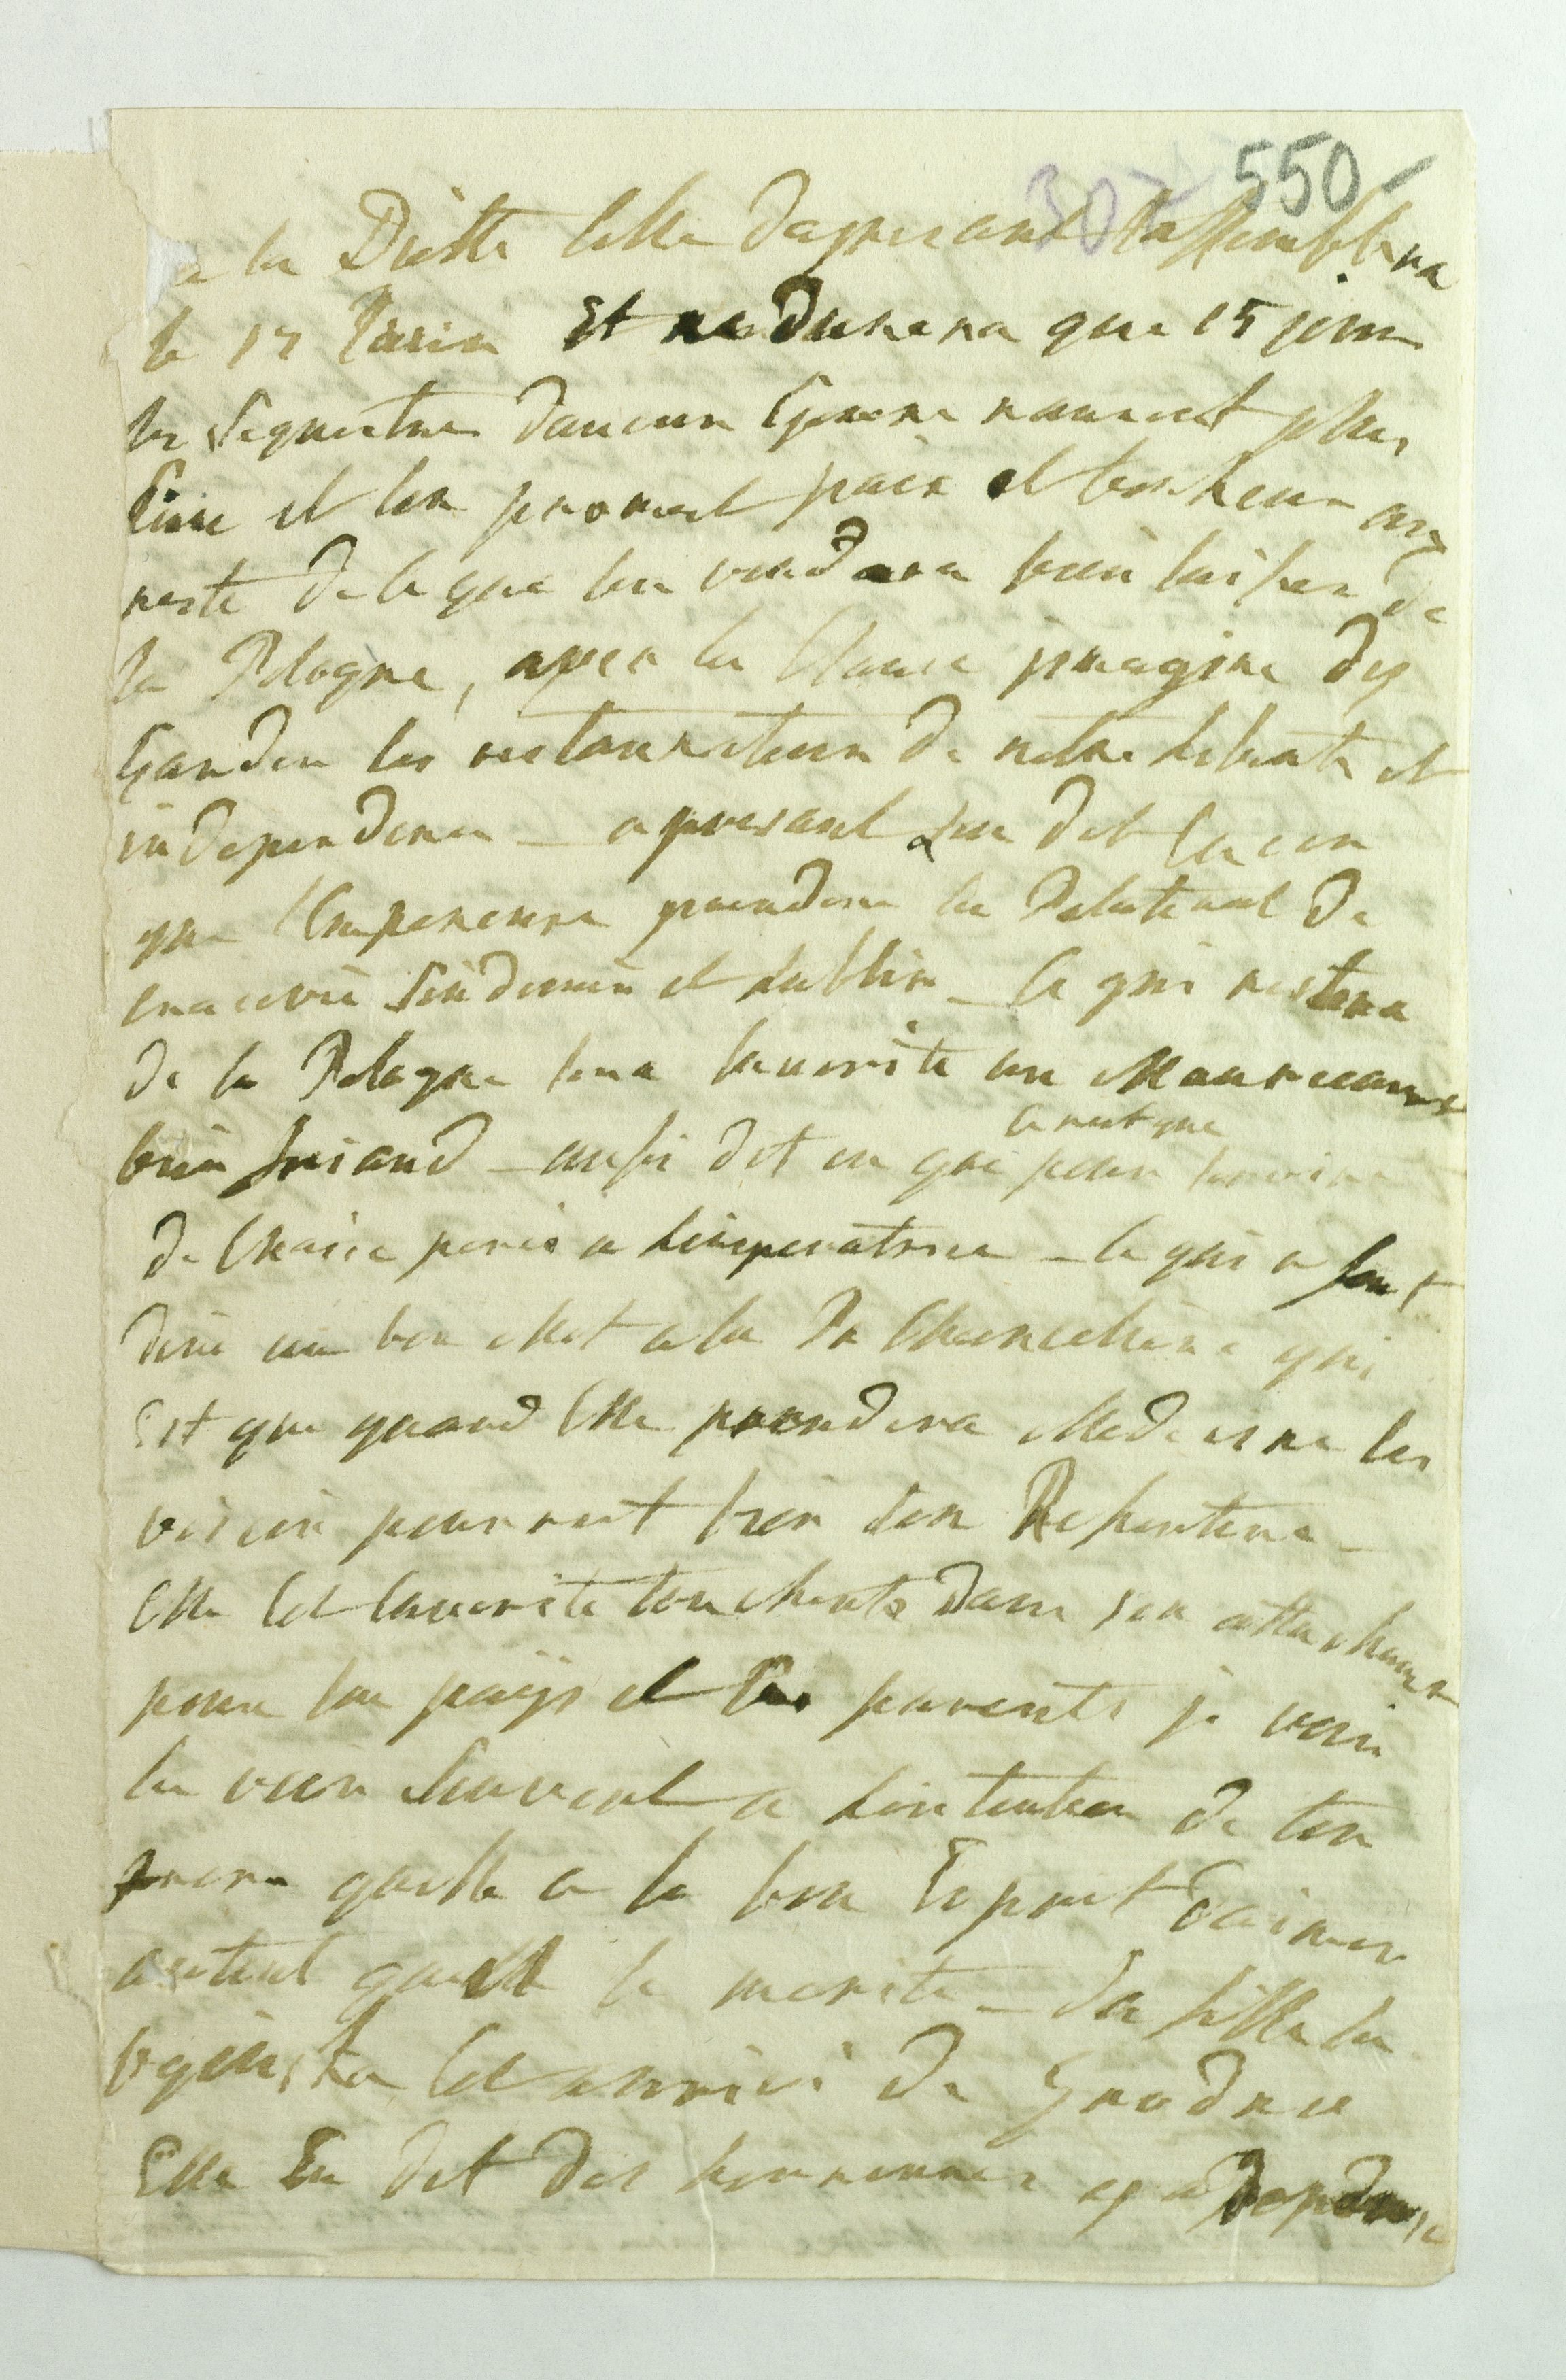 550
307
a la Diette celle dapresent sassemblera
le 17 Juin Et ne durera que 15 jour
les sequestres daucun Genre naurout plus
lieu et lon promet paix et bonheur au
reste de ce que lon voudrera bien laisser de
la Pologne, apres la Clause imagine des
Garden les restaurateurs de notre liberte et
independence _ apresant lon dit
que lempereur prendera le Palatinat de
cracovie Sendomir et Lublin _ ce qui restera
de la Pologne sera la verite un Mourceaux
bien friand _ aussi dit on que pour
ce nest que
de Chaire peris a Limperatrice _ ce qui a fait
dire un bon Mot a la Pr Chanceliere qui
Est que quand Elle prendera Medecine les
voisin pourront bien sen Resentire _
Elle est la verite touchente dans son attachement
pour son païjs et ses parents je vais
la voir souvent a Lintention de ton
frere quelle a le bon Esprit daimer
autent quil le merite _ Sa fille la
est arrivé de Grodno
Elle En dit des horreures